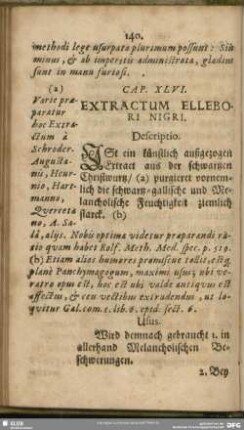 140.
methodi lege usurpata plurimum possunt: Sin
minus, & ab imperitis administrata, gladius
sunt in manu furiosi.
(a)
Varie præ-
paratur
hoc Extra-
ctum à
Schroder.
Augusta-
nis, Heur-
nio, Hart-
manno,
Quercetano,
A. Sa-
CAP. XLVI.
EXTRACTUM ELLEBO-
RI NIGRI.
Descriptio.
ISt ein künstlich außgezogen
Extract aus der schwartzen
Christwurtz/ (a) purgieret vornem-
lich die schwartz-gallische und Me-
lancholische Feuchtigkeit ziemlich
starck. (b)
lâ, aliis. Nobis optima videtur præparandi ra-
tio quam habet Rolf. Meth. Med. spec. p. 519.
(b) Etiam alios humores promiscue tollit, estq;
planè Panchymagogum, maximi usus; ubi ve-
ratro opus est, hoc est ubi valde antiquus est
affectus, & ceu vectibus extrudendus, ut lo-
quitur Gal. com. 1. lib. 6. epid. sect. 6.
Usus.
Wird demnach gebraucht 1. in
allerhand Melancholischen Be-
schwerungen.
2. Bey
SLUB
DFG